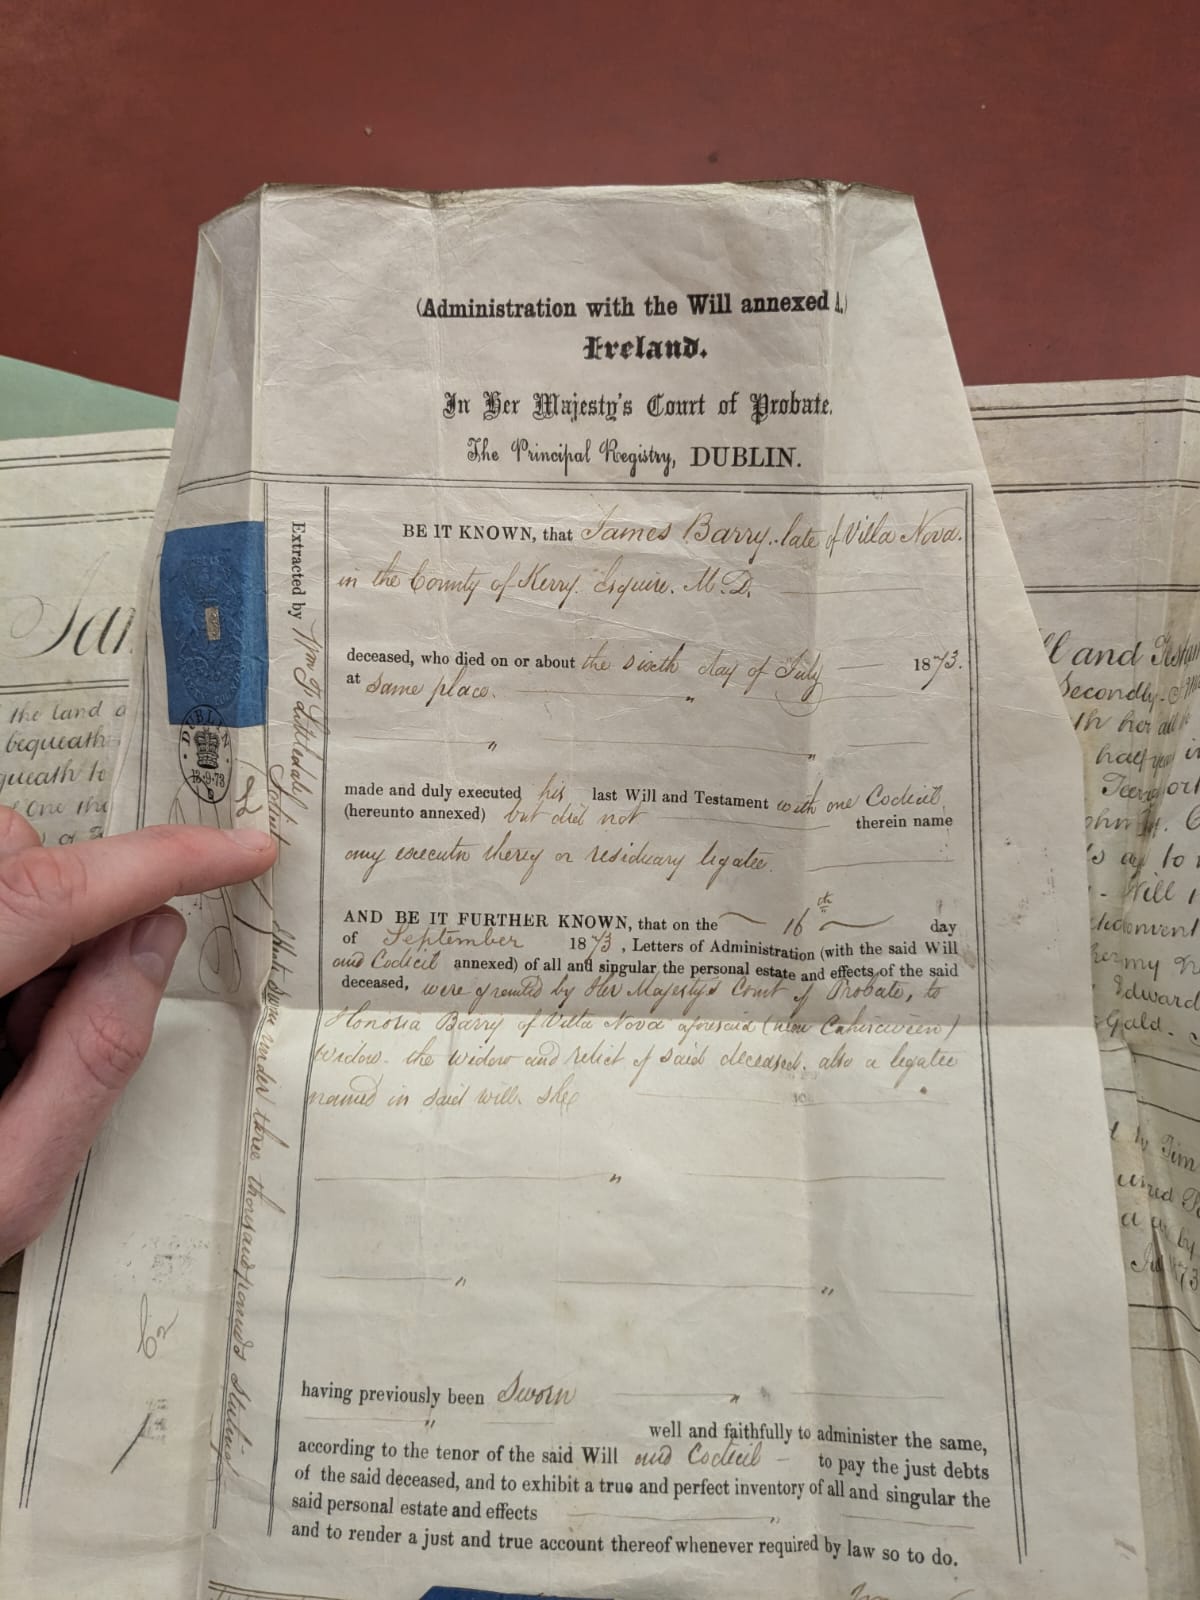 (Administration with the Will annexed.)
Ireland.
In Her Majesty's Court of Probate.
The Principal Registry, DUBLIN.
BE IT KNOWN, that James Barry, late of Villa Nova.
in the County of Kerry. Esquire. M.D.
deceased, who died on or about the sixth day of July 1873.
at same place.
made and duly executed his last Will and Testament with one Codicil
(hereunto annexed) but did not therein name
any executor thereof or residuary legatee.
AND BE IT FURTHER KNOWN, that on the 16th day
of September 1873, Letters of Administration (with the said Will
and Codicil annexed) of all and singular the personal estate and effects of the said
deceased, were granted by Her Majesty's Court of Probate, to
Honoria Barry of Villa Nova aforesaid (near Cahirciveen)
Widow. the widow and relict of said deceased. also a legatee
named in said will. she
having previously been Sworn
well and faithfully to administer the same,
according to the tenor of the said Will and Codicil to pay the just debts
of the said deceased, and to exhibit a true and perfect inventory of all and singular the
said personal estate and effects
and to render a just and true account thereof whenever required by law so to do.
Extracted by Wm
Sworn under three thousand pounds
DUBLIN
13·9·73
the land
bequeath
queath to
One the
ll and
Secondly
th her all
half
Will
my
Edward
Gald.
Tim
by